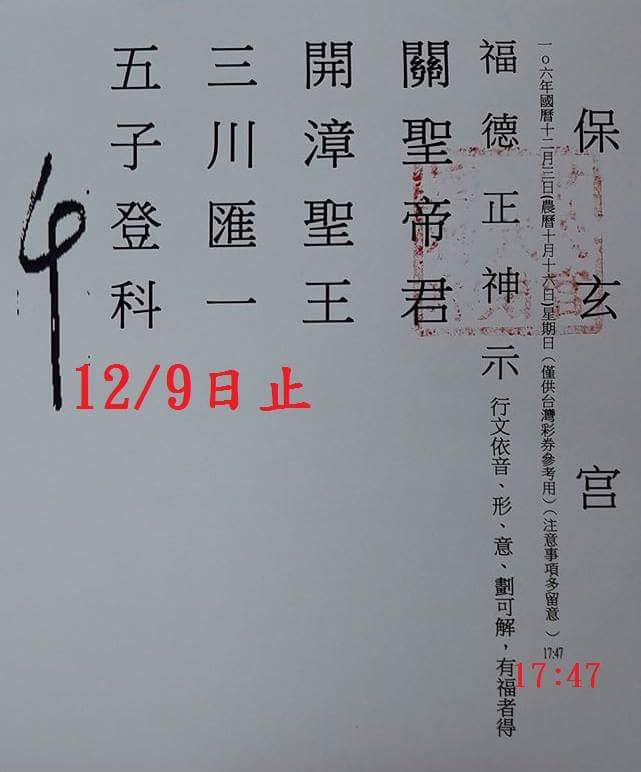 保玄宮
一０六年國曆十二月三日(農曆十月十六日)星期日(僅供台灣彩券參考用)(注意事項多留意)17:47
17:47
福德正神示 行文依音、形、意、劃可解，有福者得
關聖帝君
開漳聖王
三川匯一
五子登科
12/9日止